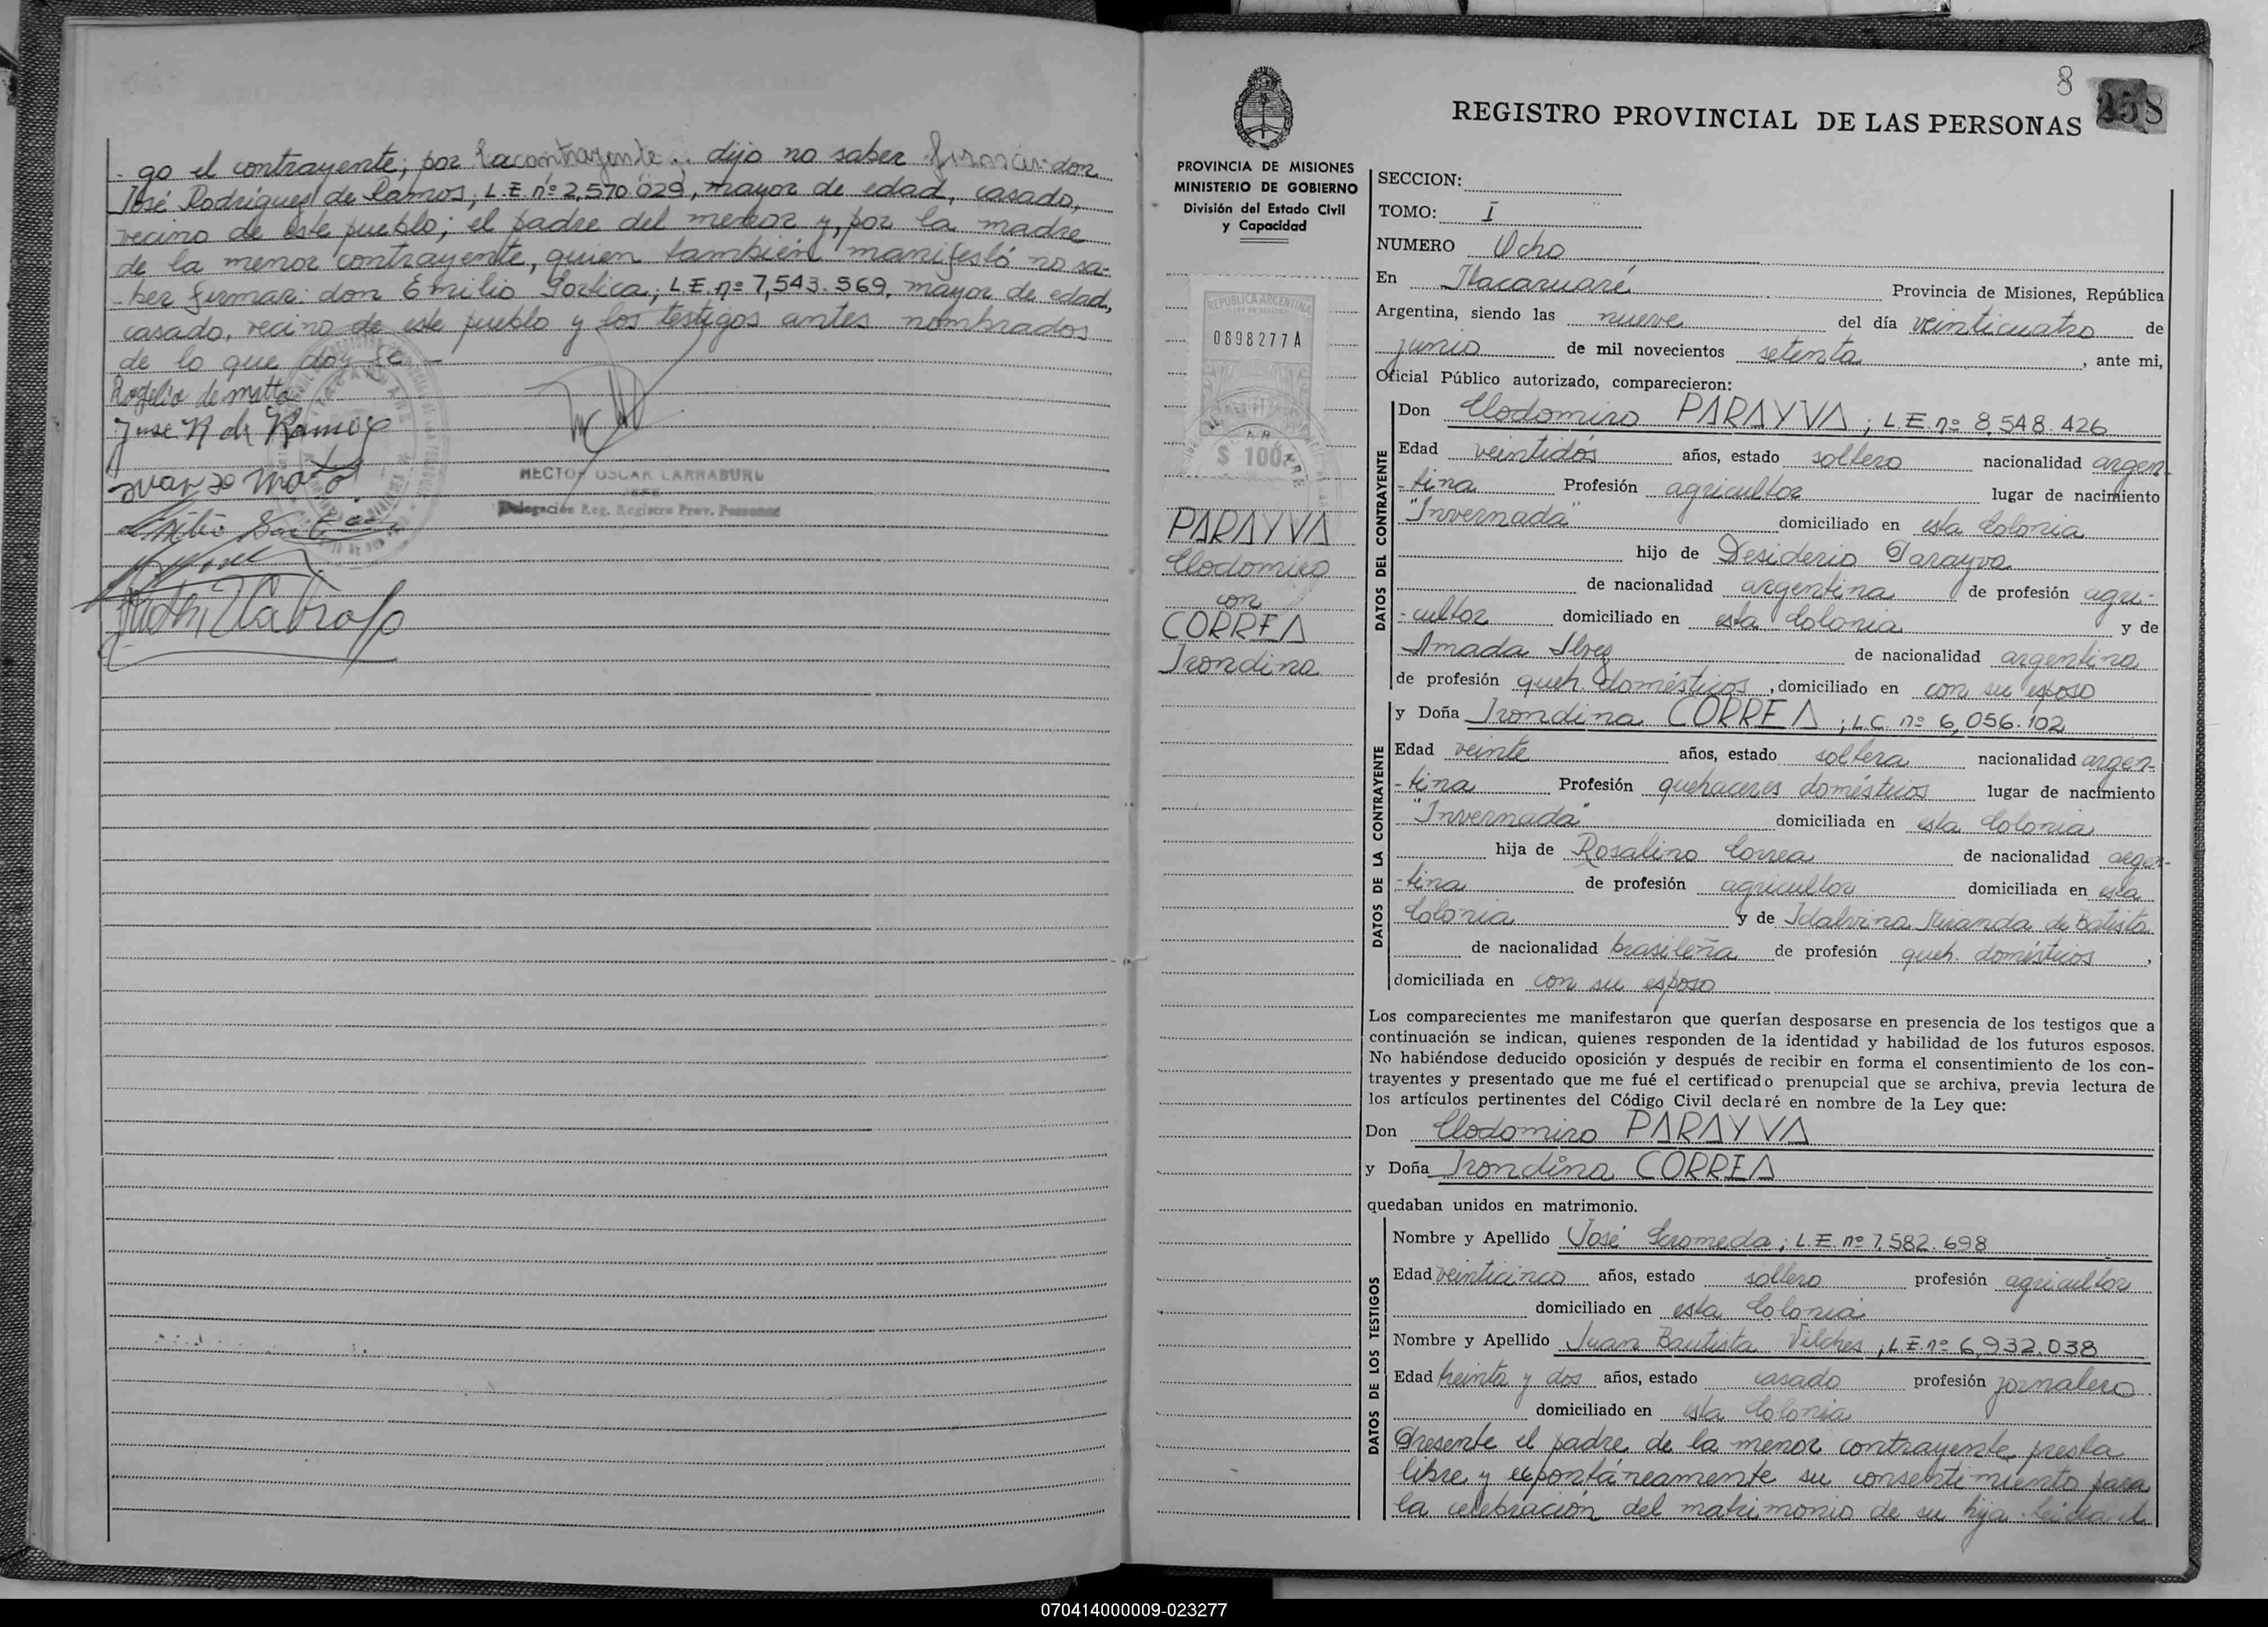 - go el contrayente; por la contrayente.. dijo no saber firmar: don
José Rodrigues de Ramos, L.E. nº 2,570.029, mayor de edad, casado,
vecino de este pueblo; el padre del menor y, por la madre
de la menor contrayente, quien también manifestó no sa-
-ber firmar: don Emilio L.E. nº 7,543.569, mayor de edad,
casado, vecino de este pueblo y los testigos antes nombrados
de lo que doy fe
Rogelio de matta
Jose R de Ramos
HECTOR OSCAR LARRABURU
JEFE
Delegación Reg. Registro Prov. Personas
8
258
REGISTRO PROVINCIAL DE LAS PERSONAS
PROVINCIA DE MISIONES
MINISTERIO DE GOBIERNO
División del Estado Civil
y Capacidad
REPUBLICA ARGENTINA
0898277A
$ 100
PARAYVA
Clodomiro
con
CORREA
Irondina
SECCION:
TOMO: I
NUMERO Ocho
En Itacaruaré Provincia de Misiones, República
Argentina, siendo las nueve del día veinticuatro de
junio de mil novecientos setenta, ante mi,
Oficial Público autorizado, comparecieron:
DATOS DEL CONTRAYENTE
Don Clodomiro PARAYVA; L.E. nº 8,548.426
Edad veintidós años, estado soltero nacionalidad argen-
-tina Profesión agricultor lugar de nacimiento
"Invernada" domiciliado en esta Colonia
hijo de Desiderio Parayva
de nacionalidad argentina de profesión agri-
-cultor domiciliado en esta Colonia y de
Amada de nacionalidad argentina
de profesión queh. domésticos, domiciliado en con su esposo
DATOS DE LA CONTRAYENTE
y Doña Irondina CORREA; L.C. nº 6,056.102
Edad veinte años, estado soltera nacionalidad argen-
-tina Profesión quehaceres domésticos lugar de nacimiento
"Invernada" domiciliada en esta Colonia
hija de Rosalino Correa de nacionalidad argen-
-tina de profesión agricultor domiciliada en esta
Colonia y de Idalvina Miranda de Batista
de nacionalidad brasileña de profesión queh. domésticos,
domiciliada en con su esposo
Los comparecientes me manifestaron que querían desposarse en presencia de los testigos que a
continuación se indican, quienes responden de la identidad y habilidad de los futuros esposos.
No habiéndose deducido oposición y después de recibir en forma el consentimiento de los con-
trayentes y presentado que me fué el certificado prenupcial que se archiva, previa lectura de
los artículos pertinentes del Código Civil declaré en nombre de la Ley que:
Don Clodomiro PARAYVA
y Doña Irondina CORREA
quedaban unidos en matrimonio.
DATOS DE LOS TESTIGOS
Nombre y Apellido José L.E. nº 7,582.698
Edad veinticinco años, estado soltero profesión agricultor
domiciliado en esta Colonia
Nombre y Apellido Juan Bautista Vilches; L.E. nº 6,932.038
Edad treinta y dos años, estado casado profesión jornalero
domiciliado en esta Colonia
Presente el padre de la menor contrayente presta
libre y espontáneamente su consentimiento para
la celebración del matrimonio de su hija. Leída el
070414000009-023277